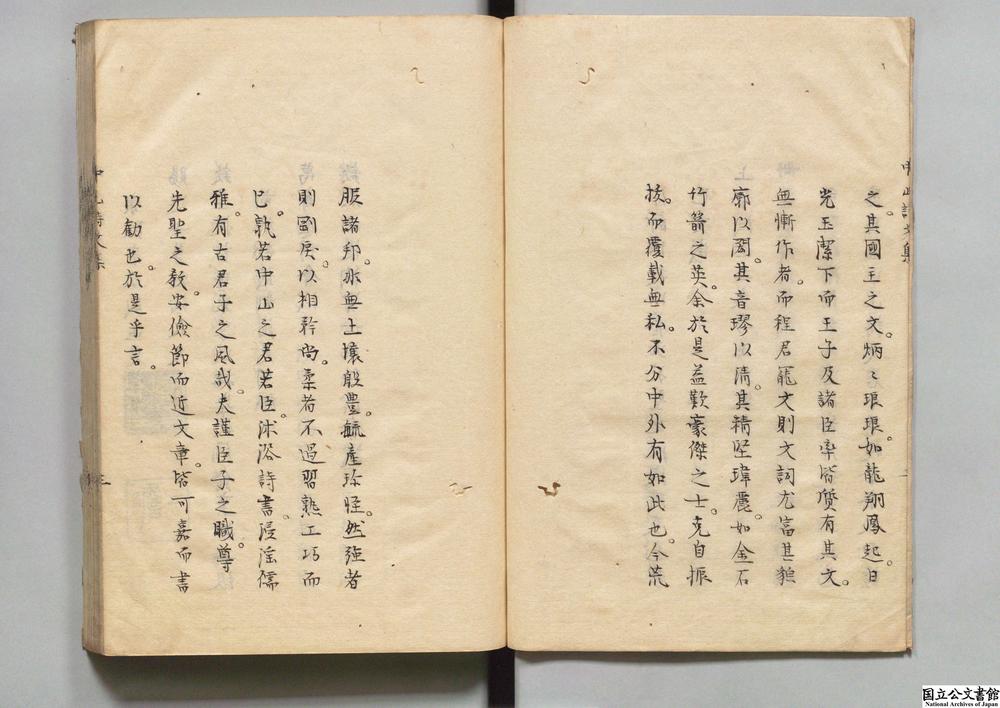 之。其國王之文。炳々琅琅。如龍翔鳳起。日
光玉潔下而王子及諸臣率皆贊有其文。
無慚作者。而程君寵文則文詞尤富其貌
廓以閎。其音璆以清。其精堅瑋麗。如金石
竹箭之英。余於是益歎豪傑之士。克自振
拔。而覆載無私。不分中外有如此也。今荒
服諸邦。水無土壤殷豊。毓產珍怪。然强者
則剛戾。以相矜尚。柔者不過習熟工巧而
已。孰若中山之君若臣。沐浴詩書。浸淫儒
雅。有古君子之風哉。夫謹臣子之職尊
先聖之教。安儉節而近文章。皆可嘉而書
以勸也。於是乎言。
中山詩文集
三
国立公文書館
National Archives of Japan